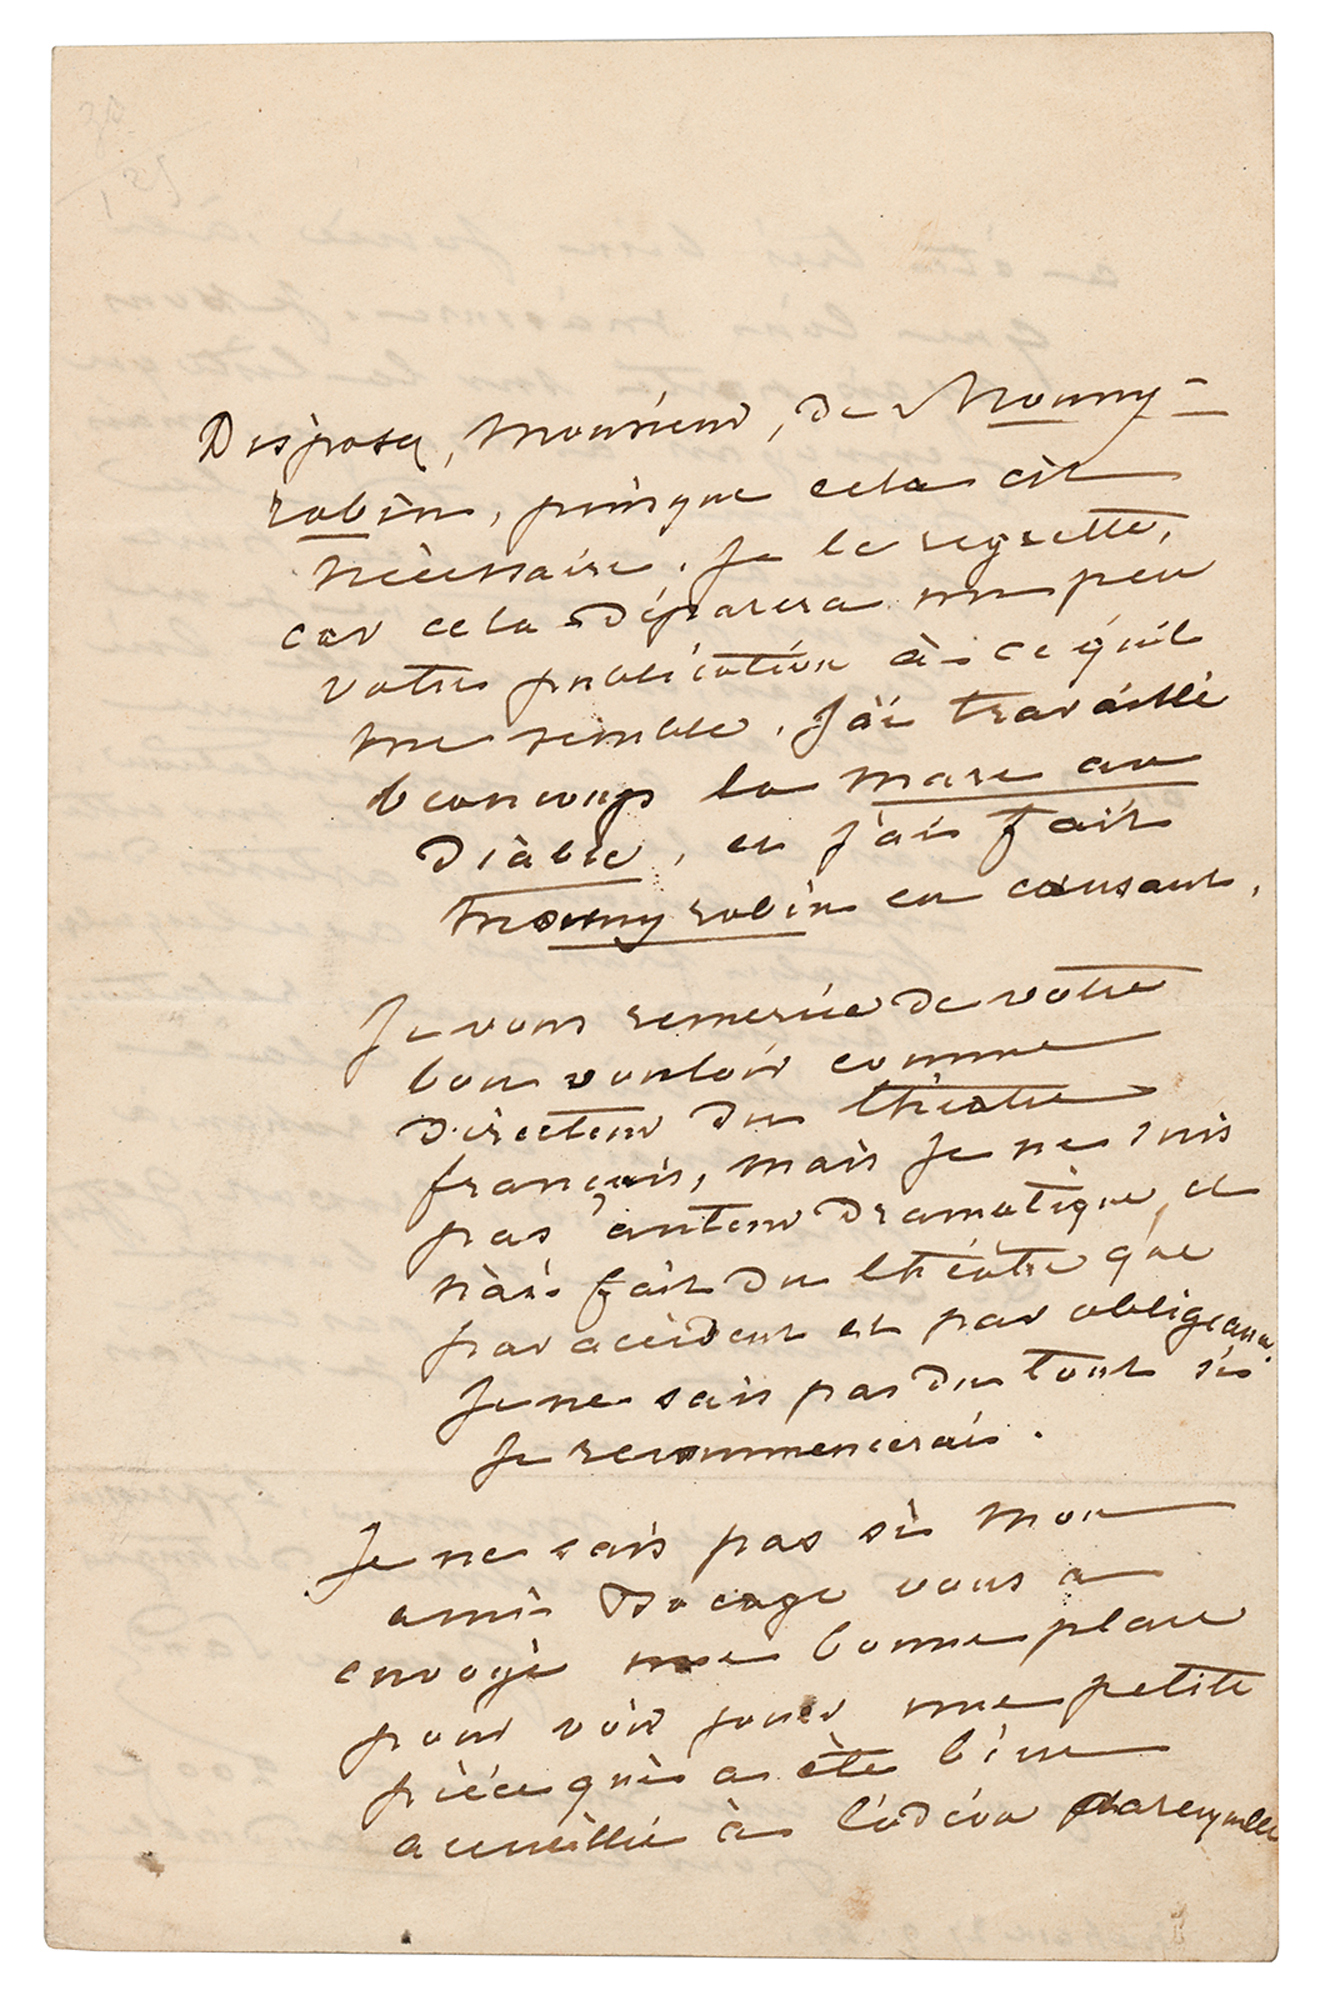 Disposez, Monsieur, de Mouny-
robin, puisque cela est
nécessaire. Je le regrette,
car cela déparera un peu
votre publication à ce qu'il
me semble. J'ai travaillé
beaucoup la mare au
Diable, et j'ai fait
Mouny robin en causant.
Je vous remercie de votre
bon vouloir comme
Directeur du théâtre
français, mais je ne suis
pas auteur dramatique, et
n'ai fait du théâtre que
par accident et par obligeance.
Je ne sais pas du tout si
je recommencerais.
Je ne sais pas si mon
ami Bocage vous a
envoyé une bonne place
pour voir jouer une petite
pièce qui a été bien
accueillie à l'odéon parcequ'elle